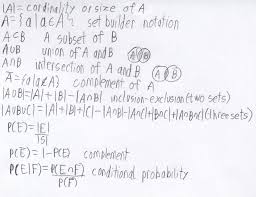 |A| = cardinality or size of A
A = {a|a∈A} set builder notation
A⊂B A subset of B
A∪B union of A and B
A∩B intersection of A and B
A̅ = {a|a∉A} complement of A
|A∪B|=|A|+|B|-|A∩B| inclusion-exclusion (two sets)
|A∪B∪C|=|A|+|B|+|C|-|A∩B|-|A∩C|-|B∩C|+|A∩B∩C| (three sets)
P(E) = |E|/|S|
P(E̅) = 1-P(E) complement
P(E|F) = P(E∩F)/P(F) conditional probability